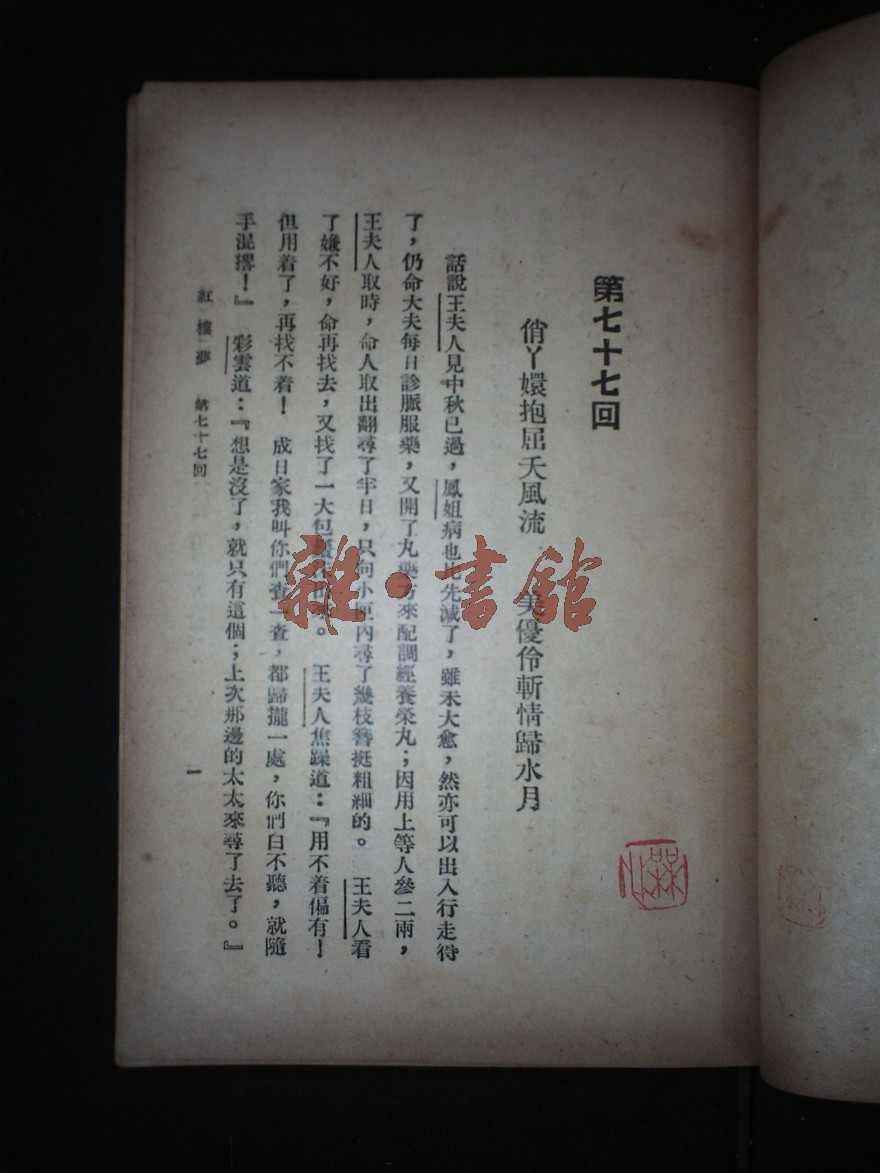 第七十七回
俏丫嬛抱屈夭風流 美優伶斬情歸水月
話說王夫人見中秋已過，鳳姐病也比先減了，雖未大愈，然亦可以出入行走得
了，仍命大夫每日診脈服藥，又開了丸藥方來配調經養榮丸；因用上等人參二兩，
王夫人取時，命人取出翻尋了半日，只向小匣內尋了幾枝簪挺粗細的。 王夫人看
了嫌不好，命再找去，又找了一大包 。 王夫人焦躁道：『用不着偏有！
但用着了，再找不着！ 成日家我叫你們查一查，都歸攏一處，你們白不聽，就隨
手混撂！』 彩雲道：『想是沒了，就只有這個；上次那邊的太太來尋了去了。』
紅樓夢 第七十七回
一
雜·書館